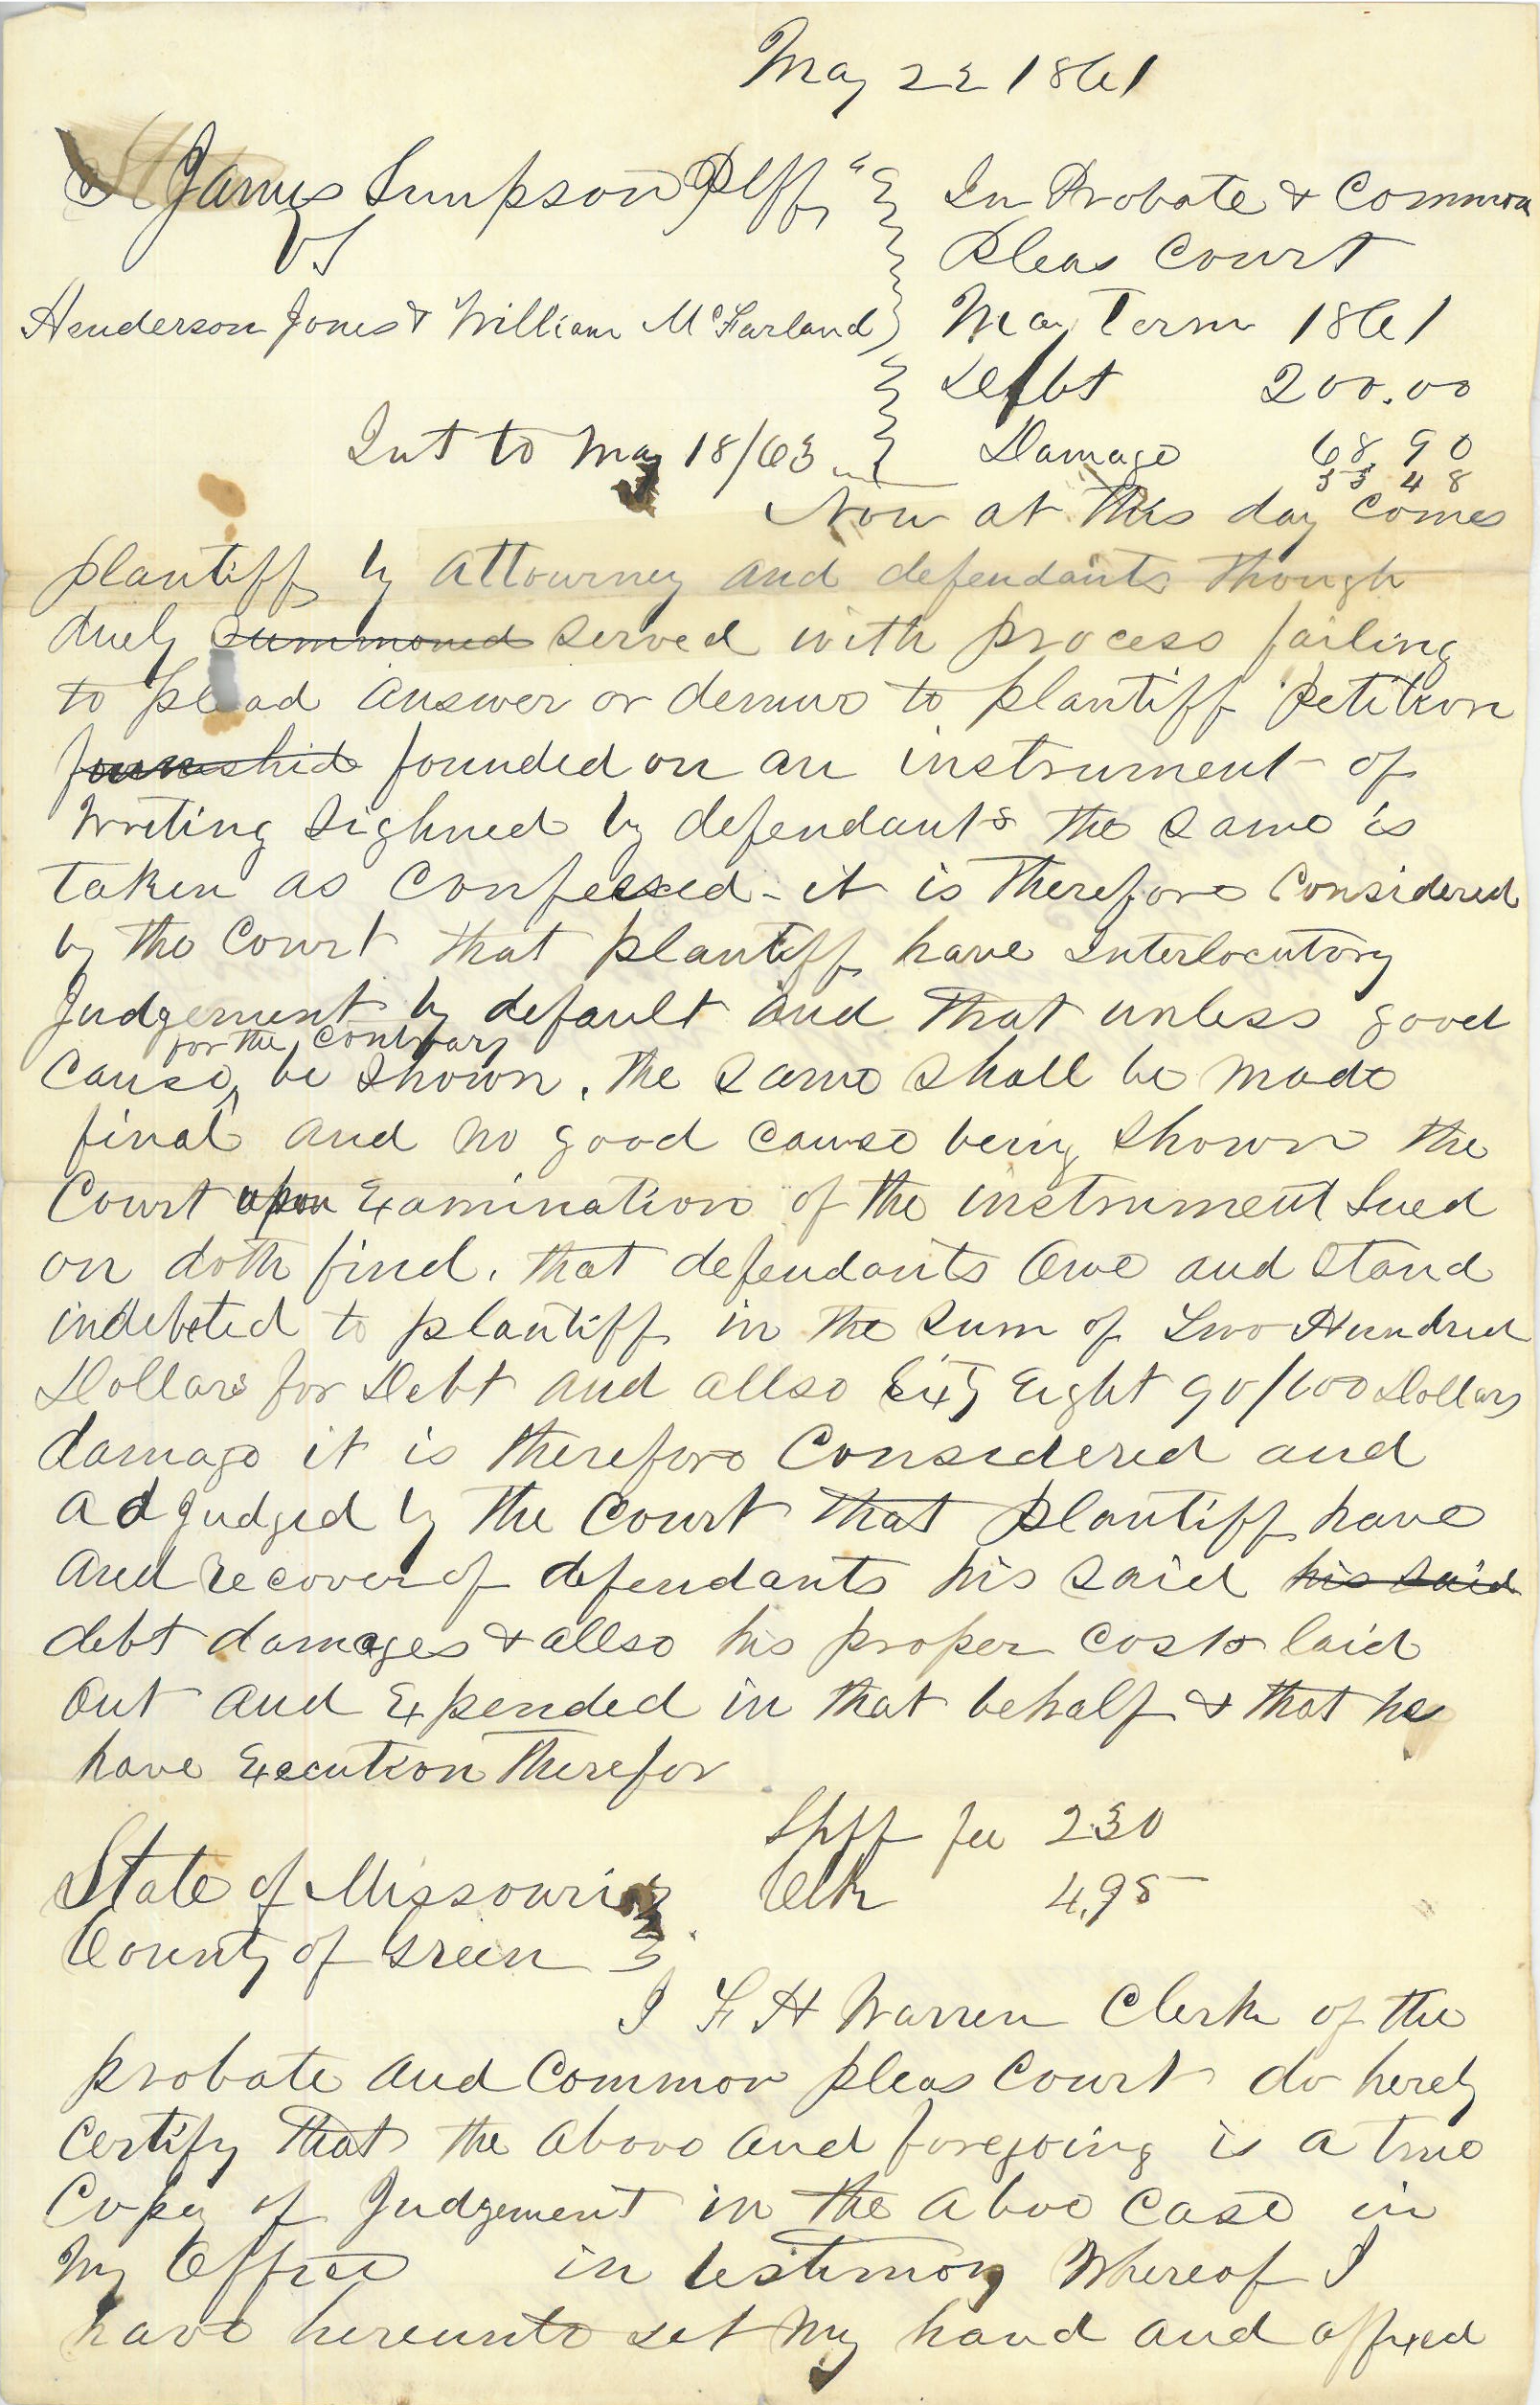 May 22 1861
James Simpson Plff
vs
Henderson Jones & William McFarland
In Probate & Common
Pleas Court
May Term 1861
Debt 200.00
Int to May 18/63 Damage 68 90
33 48
Now at this day comes
plantiff by Attourney and defendants though
duely summoned served with process failing
to plead answer or demur to plantiff petition
furnishid founded on an instrument of
writing sighned by defendants the same is
taken as confessed - it is therefore considered
by the Court that plantiff have Interlocutory
Judgement by default and that unless good
for the contrary
cause be shown. the same shall be made
final and no good cause being shown the
Court upon Examination of the instrument Sued
on doth find. that defendants Owe and Stand
indebeted to plantiff in the Sum of Two Hundred
Dollars for Debt and allso Sixty Eight 90/100 Dollars
damage it is therefore Considered and
adjudged by the Court that plantiff have
and recover of defendants his said his said
debt damages & allso his proper costs laid
out and Expended in that behalf & that he
have Execution Therefor
Shff fee 2.30
State of Missouri Clk 4.95
County of Green
I F H Warren Clerk of the
probate and Common pleas Court do hereby
certify that the above and foregoing is a true
Copy of Judgement in the above case in
My Office in testimony Whereof I
have hereunto set my hand and affixed